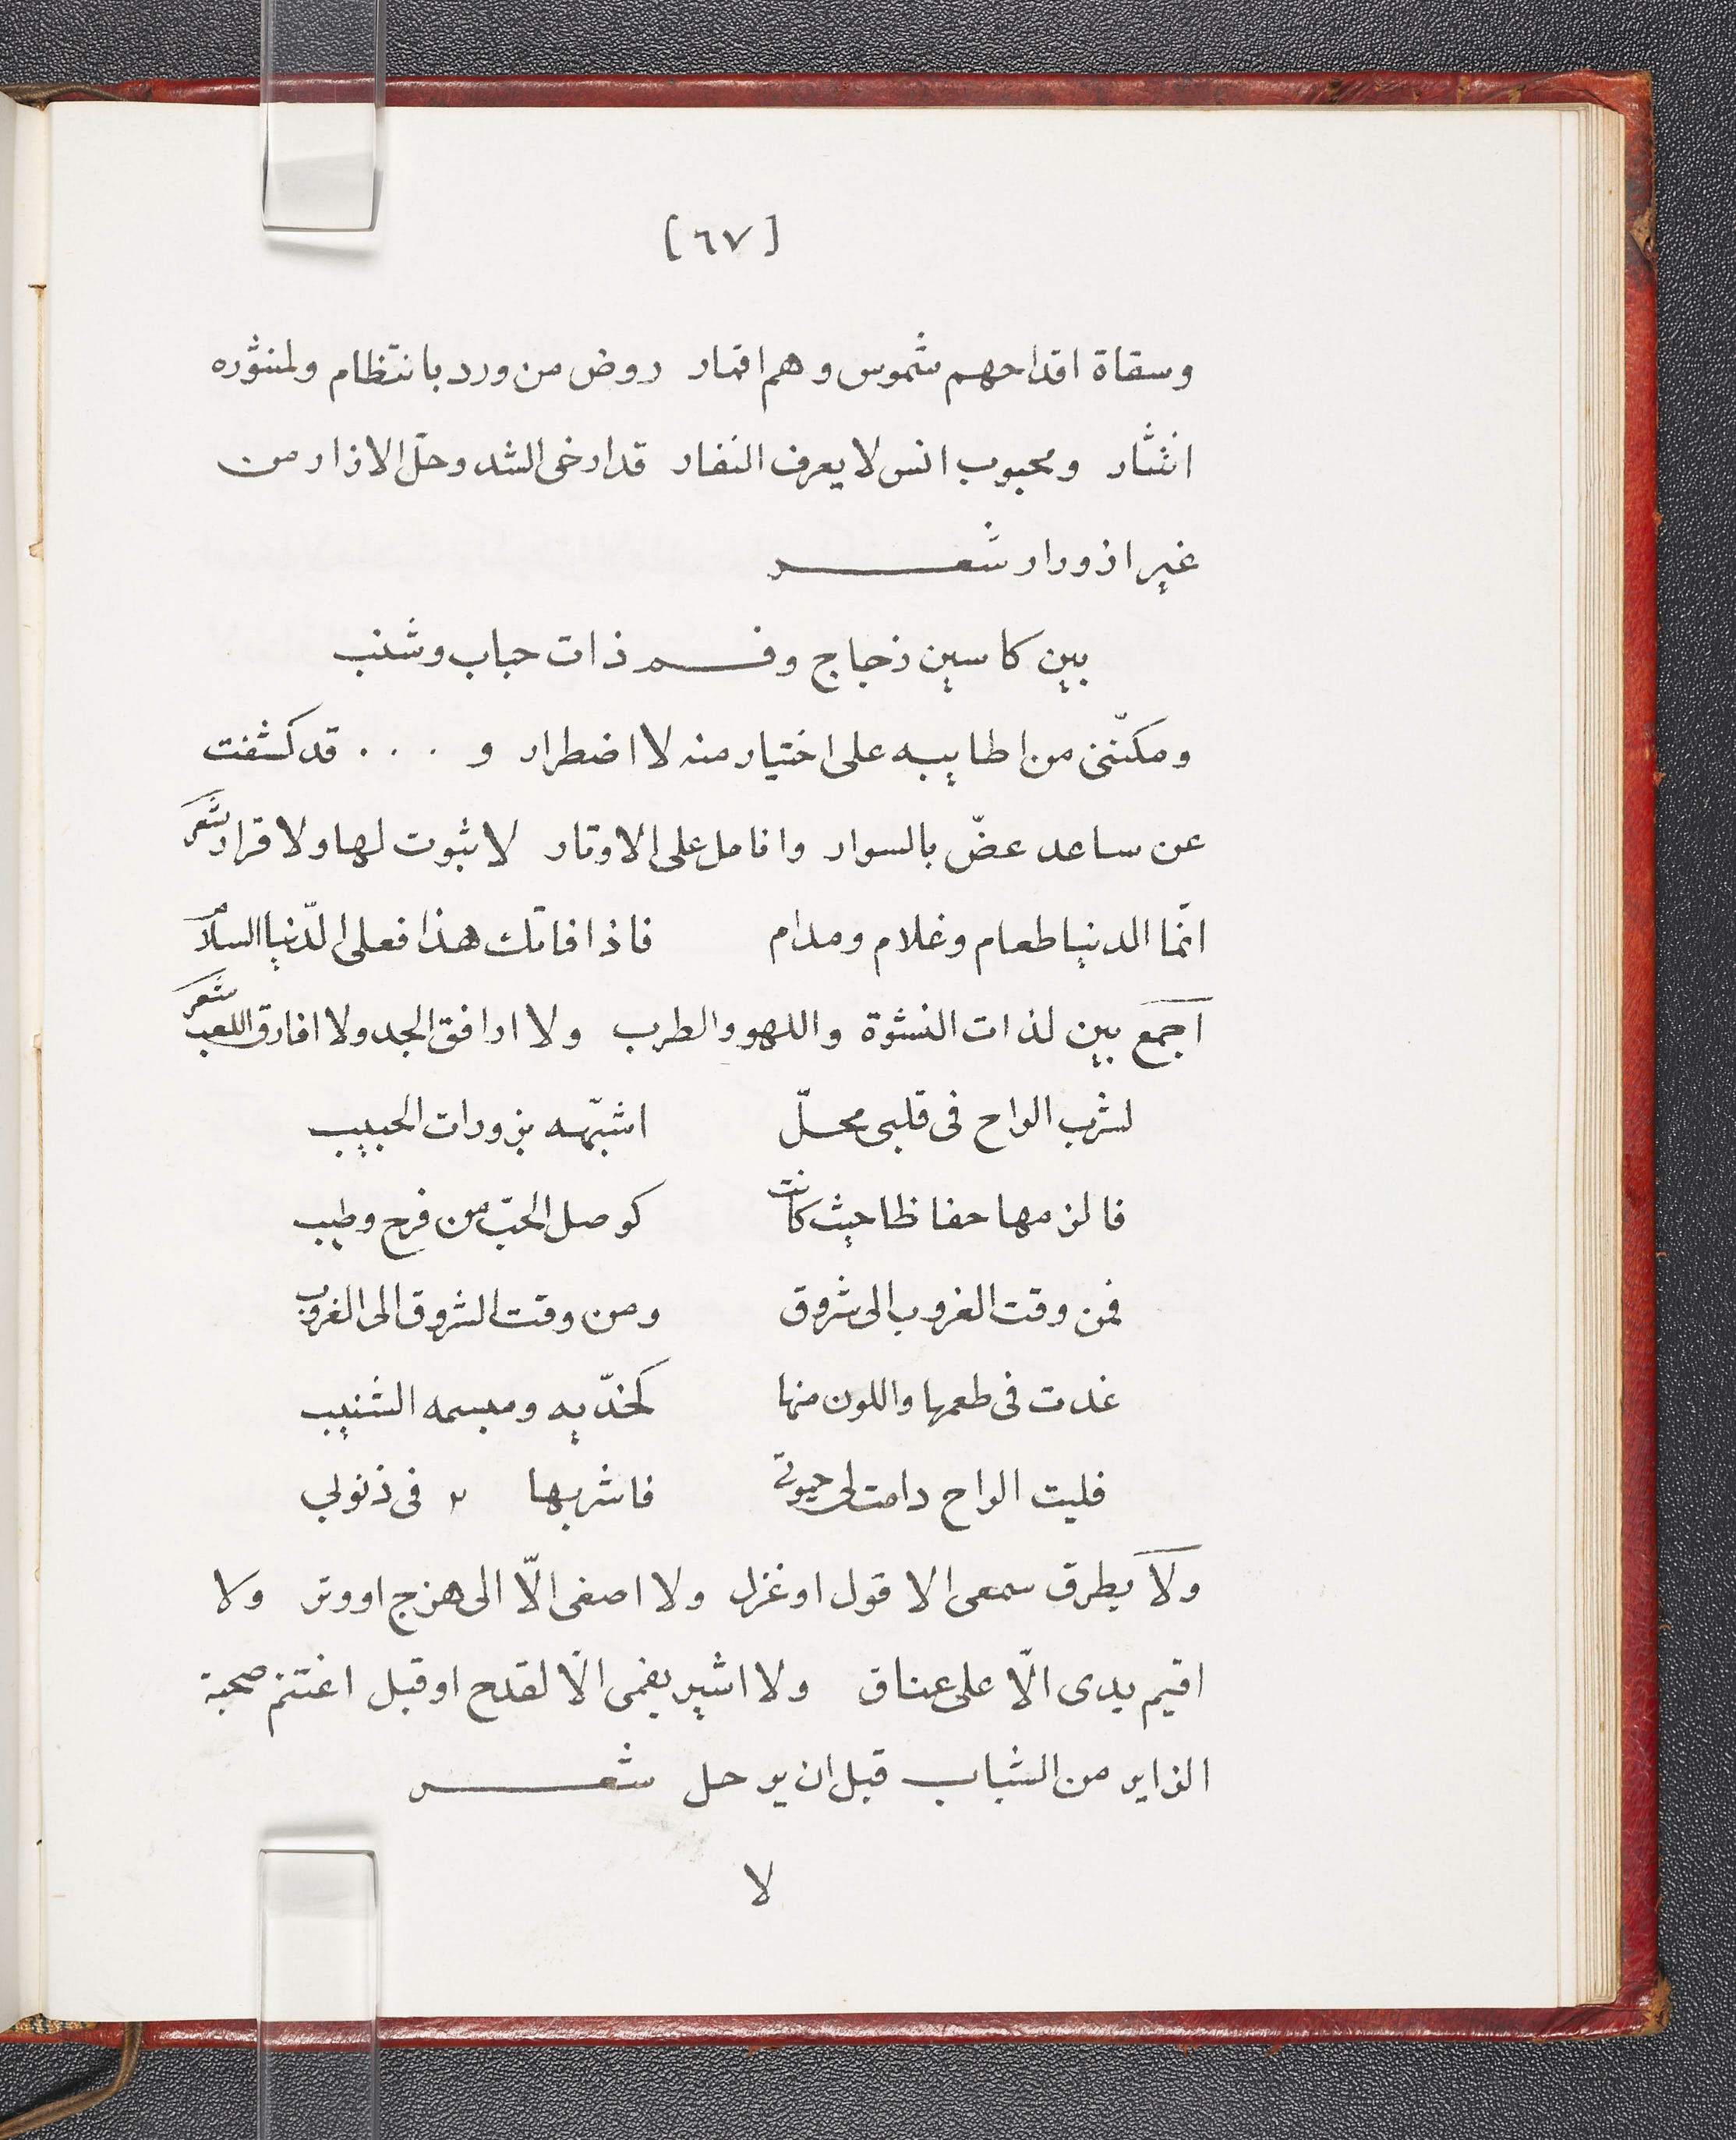 [٦٧]
وسقاة اقداحهم شموس وهم اقمار روض من ورد بانتظام ولمنثوره
انتثار ومحبوب انس لا يعرف النفار قد ارخى الشد وحلّ الازار من
غير ازورار شعـــر
بين كاسين زجاج وفـــم ذات حباب وشنب
ومكنّنى من اطايبه على اختيار منه لا اضطرار و . . . قد كشفت
عن ساعد عضّ بالسوار وانامل على الاوتار لا ثبوت لها ولا قرار شعر
انّما الدنيا طعام وغلام ومدام فاذا فاتك هذا فعلى الدّنيا السلام
اجمع بين لذات النشوة واللهو والطرب ولا ارافق الجد ولا افارق اللعب شعر
لشرب الراح فى قلبى محلّ اشبّهه بزورات الحبيب
فالزمها حفاظا حيث كانت كوصل الحبّ من فرح وطيب
فمن وقت الغروب الى شروق ومن وقت الشروق الى الغروب
غدت فى طعمها واللون منها كخدّيه ومبسمه الشنيب
فليت الراح دامت لى حيوتى فاشربها فى ذنوبى
ولا يطرق سمعى الا قول او غزل ولا اصغى الّا الى هزج او وتر ولا
اقيم يدى الّا على عناق ولا اشير بفمى الّا لقدح او قبل اغتنم صحبة
الزاير من الشباب قبل ان يرحل شعـــر
لا